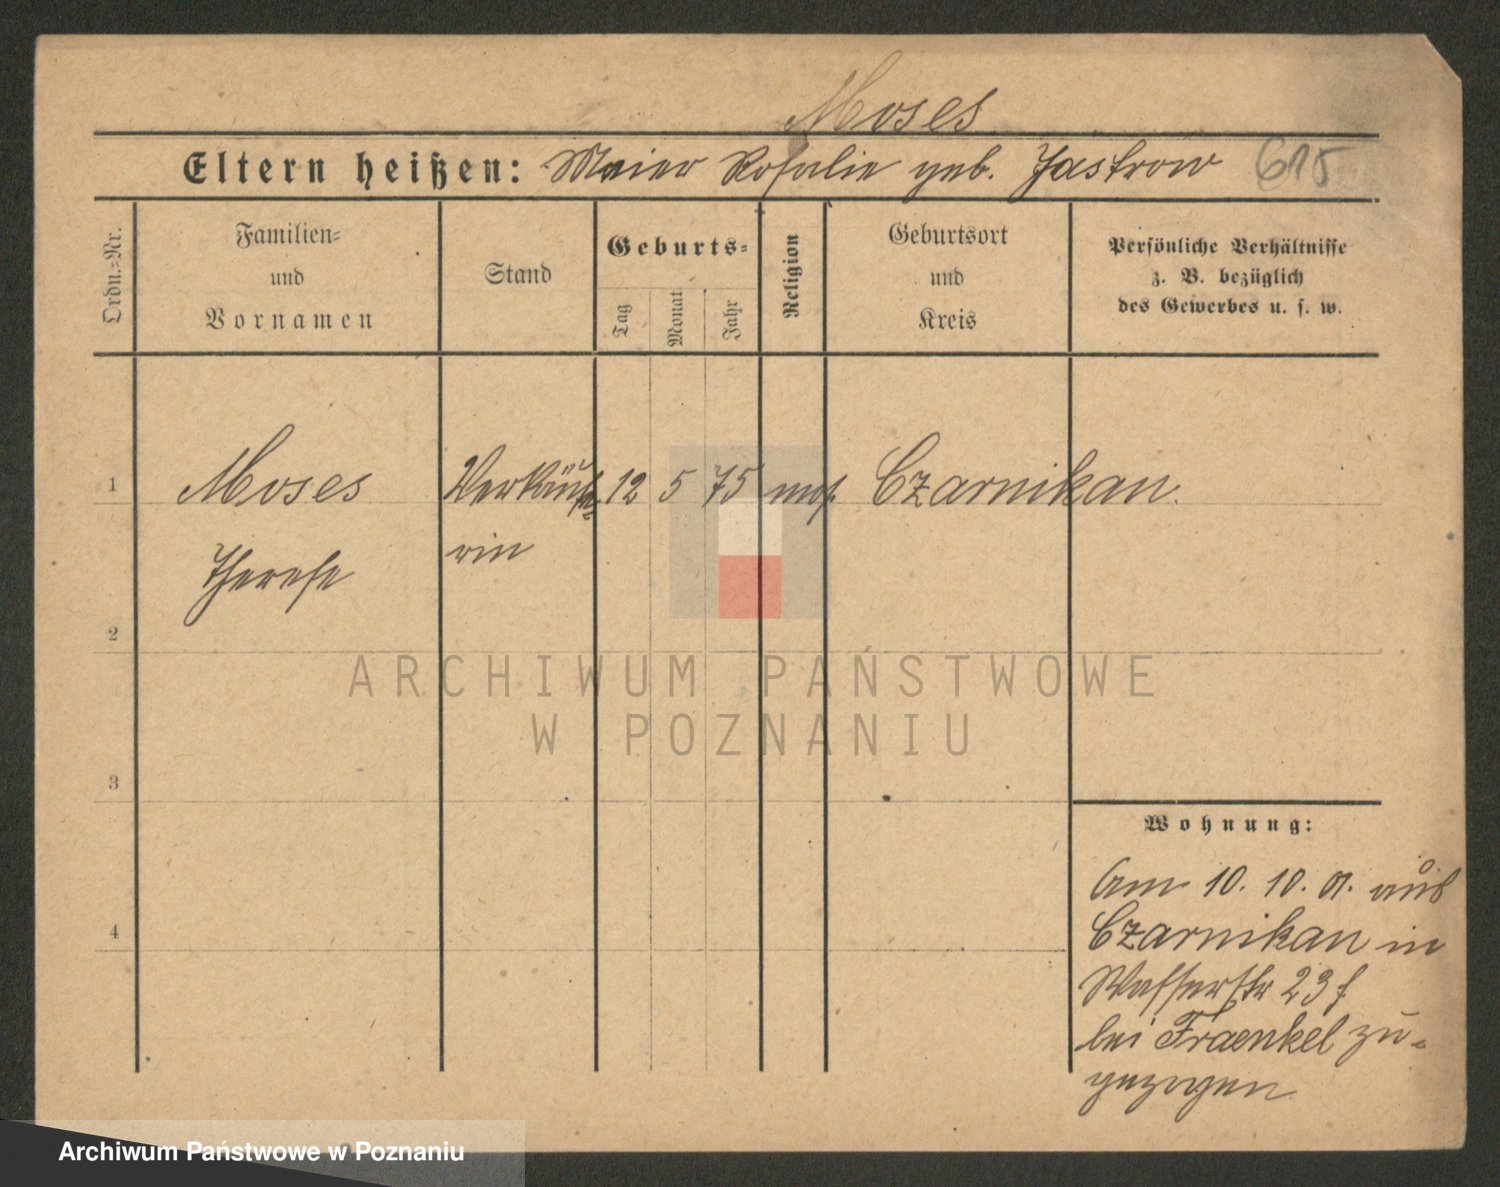 Moses
Eltern heißen: Meier Rosalie geb. Jastrow 615
Ordn.=Nr.
Familien=
und
Vornamen
Stand
Geburts=
Tag
Monat
Jahr
Religion
Geburtsort
und
Kreis
Persönliche Verhältnisse
z. B. bezüglich
des Gewerbes u. s. w.
1 Moses Verkäufe= 12 5 75 mos. Czarnikau.
Therese rin
2
3
4
ARCHIWUM PAŃSTWOWE
W POZNANIU
Wohnung:
Am 10. 10. 01. aus
Czarnikau in
Wasserstr 23
bei Fraenkel zu=
gezogen
Archiwum Państwowe w Poznaniu